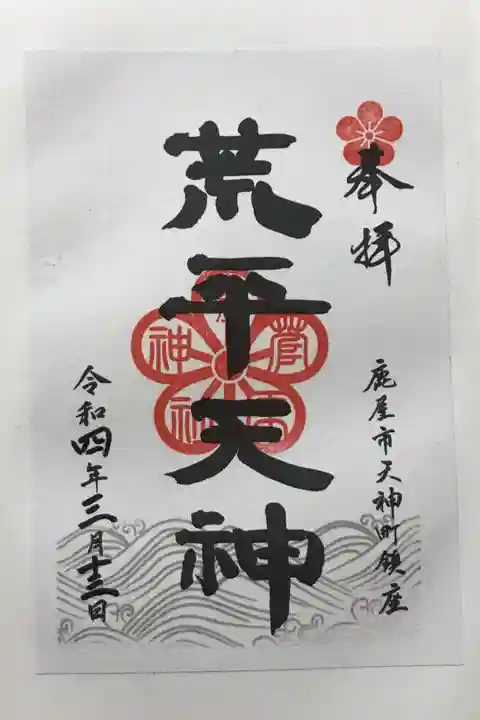 奉拝
鹿屋市天神町鎮座
荒平天神
菅原神社
令和四年三月十三日